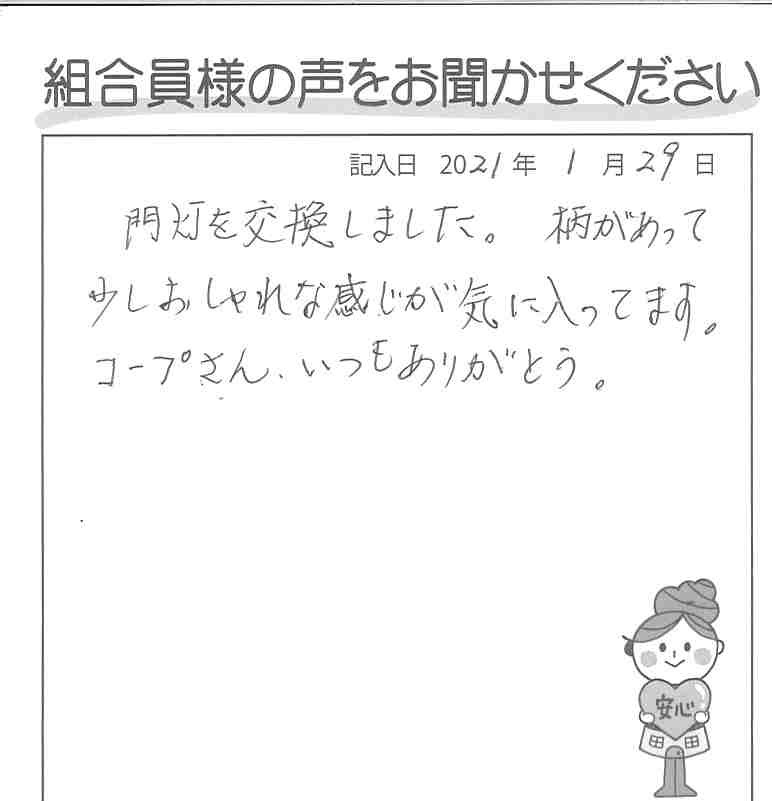 組合員様の声をお聞かせください
記入日 2021年 1月29日
門灯を交換しました。 柄があって
少しおしゃれな感じが気に入ってます。
コープさん、いつもありがとう。
安心